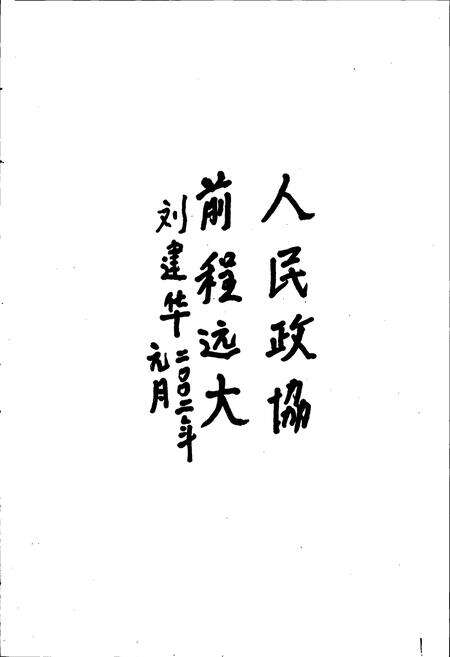 人民政協
前程远大
刘建华
二〇〇二年
元月